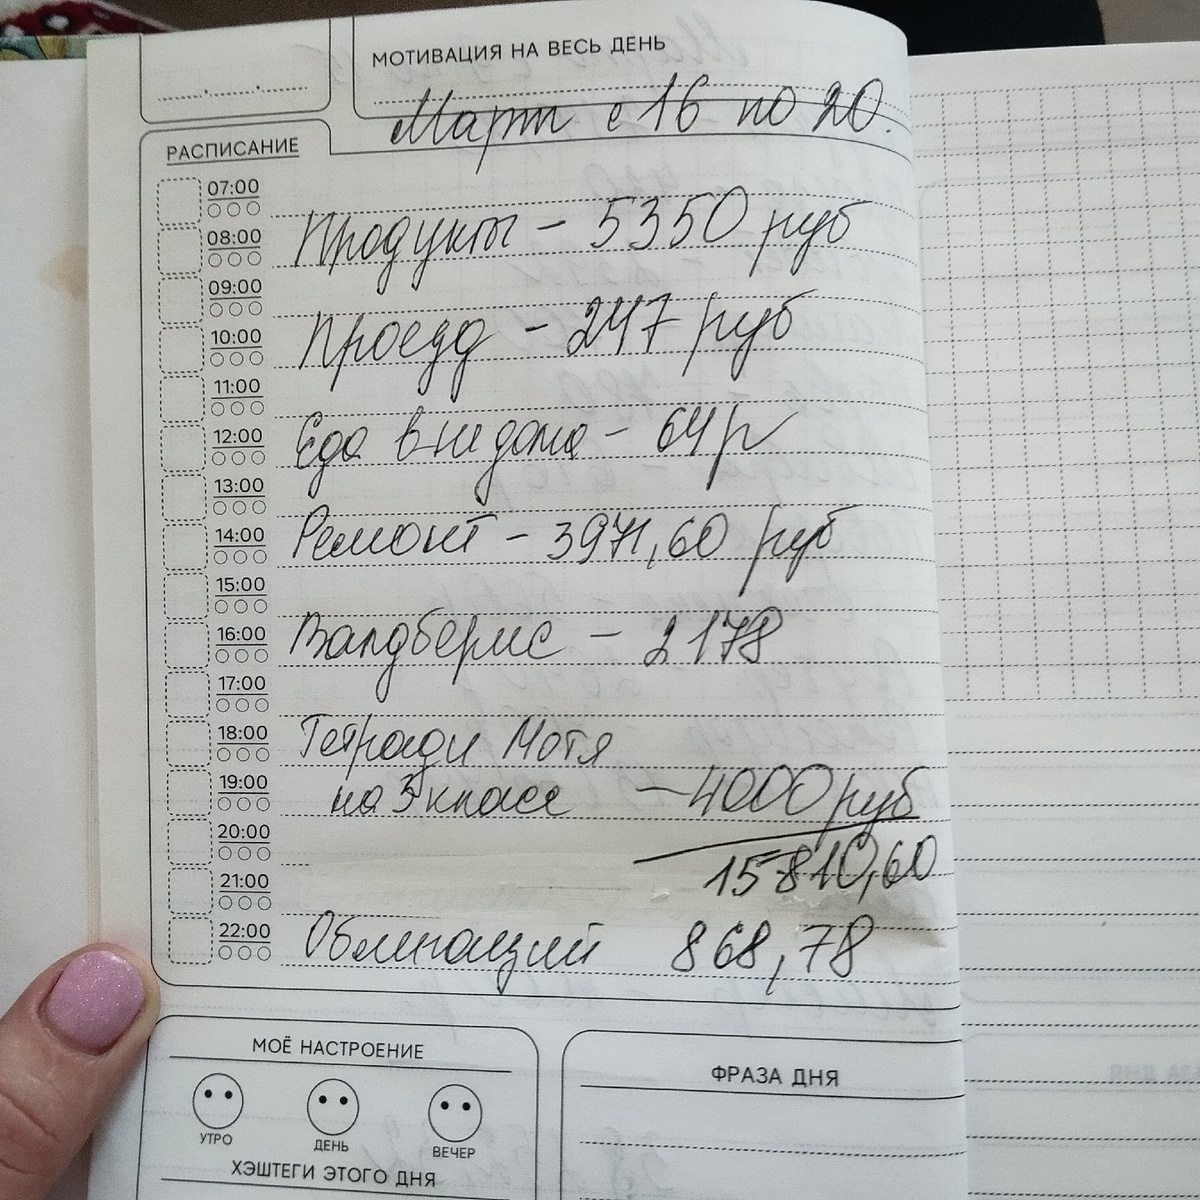 МОТИВАЦИЯ НА ВЕСЬ ДЕНЬ
Март с 16 по 20.
РАСПИСАНИЕ
07:00
08:00
Продукты - 5350 руб
09:00
10:00
Проезд - 247 руб
11:00
12:00
Еда вне дома - 64 р
13:00
14:00
Ремонт - 3971,60 руб
15:00
16:00
Валдберис - 2178
17:00
18:00
Тетради Мотя
19:00
на 3 класс - 4000 руб
20:00
15 810,60
21:00
22:00
Облигаций 868,78
МОЁ НАСТРОЕНИЕ
УТРО
ДЕНЬ
ВЕЧЕР
ХЭШТЕГИ ЭТОГО ДНЯ
ФРАЗА ДНЯ